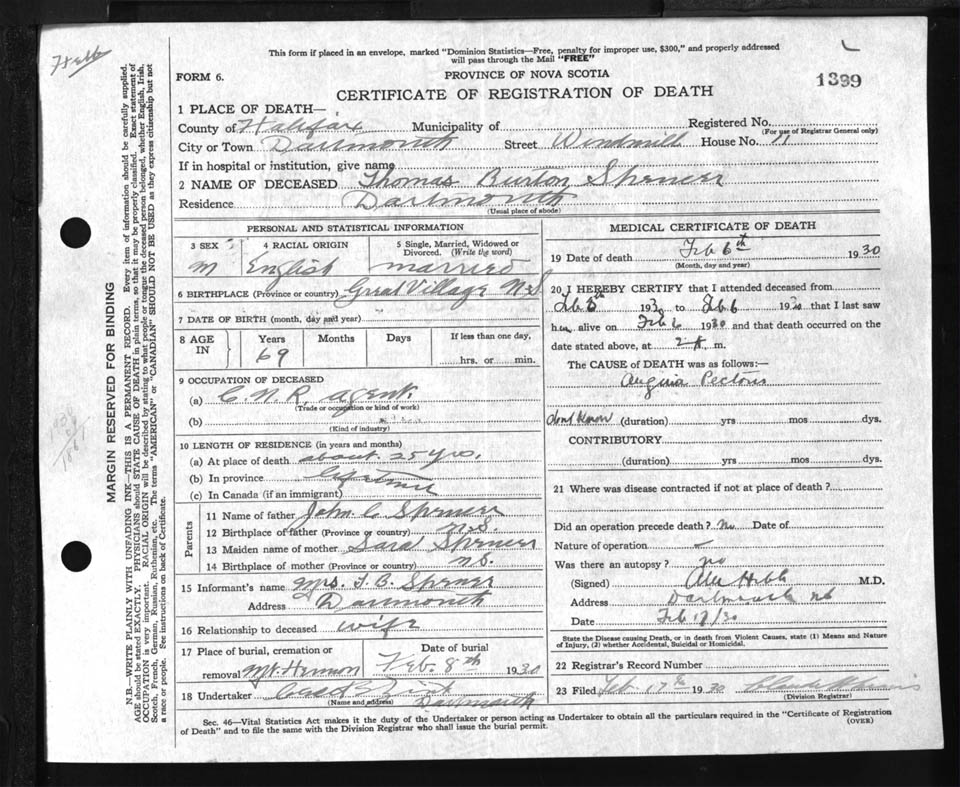 Hebb
This form if placed in an envelope, marked "Dominion Statistics—Free, penalty for improper use, $300," and properly addressed
will pass through the Mail "FREE"
FORM 6.
PROVINCE OF NOVA SCOTIA
1399
CERTIFICATE OF REGISTRATION OF DEATH
1 PLACE OF DEATH—
County of Halifax Municipality of Registered No.
(For use of Registrar General only)
City or Town Dartmouth Street Windmill House No. 11
If in hospital or institution, give name
2 NAME OF DECEASED Thomas Burton Spencer
Residence Dartmouth
(Usual place of abode)
PERSONAL AND STATISTICAL INFORMATION
3 SEX M
4 RACIAL ORIGIN English
5 Single, Married, Widowed or Divorced. (Write the word) married
6 BIRTHPLACE (Province or country) Great Village N.S
7 DATE OF BIRTH (month, day and year)
8 AGE IN Years 69 Months Days If less than one day, hrs. or min.
9 OCCUPATION OF DECEASED
(a) C.N.R. agent.
(Trade or occupation or kind of work)
(b)
(Kind of industry)
10 LENGTH OF RESIDENCE (in years and months)
(a) At place of death about 25 yrs.
(b) In province lifetime
(c) In Canada (if an immigrant)
Parents
11 Name of father John C Spencer
12 Birthplace of father (Province or country) N.S.
13 Maiden name of mother Sarah Spencer
14 Birthplace of mother (Province or country) N.S.
15 Informant's name Mrs. T. B. Spencer
Address Dartmouth
16 Relationship to deceased wife
17 Place of burial, cremation or removal Mt Hermon Date of burial Feb. 8th 1930
18 Undertaker Zink
(Name and address) Dartmouth
MEDICAL CERTIFICATE OF DEATH
19 Date of death Feb 6th 1930
(Month, day and year)
20 I HEREBY CERTIFY that I attended deceased from
Feb 5th 1930 to Feb 6 1930 that I last saw
him alive on Feb 6 1930 and that death occurred on
date stated above, at m.
The CAUSE OF DEATH was as follows:—
Angina Pectoris
dont know (duration) yrs mos dys.
CONTRIBUTORY
(duration) yrs mos dys.
21 Where was disease contracted if not at place of death?
Did an operation precede death? No Date of
Nature of operation –
Was there an autopsy? no
(Signed) Hebb M.D.
Address Dartmouth NS
Date Feb 17/30
State the Disease causing Death, or in death from Violent Causes, state (1) Means and Nature
of Injury, (2) whether Accidental, Suicidal or Homicidal.
22 Registrar's Record Number
23 Filed Feb 17th 1930
(Division Registrar)
Sec. 46—Vital Statistics Act makes it the duty of the Undertaker or person acting as Undertaker to obtain all the particulars required in the "Certificate of Registration
of Death" and to file the same with the Division Registrar who shall issue the burial permit.
(OVER)
MARGIN RESERVED FOR BINDING
N.B.—WRITE PLAINLY WITH UNFADING INK—THIS IS A PERMANENT RECORD. Every item of information should be carefully supplied.
AGE should be stated EXACTLY. PHYSICIANS should STATE CAUSE OF DEATH in plain terms, so that it may be properly classified. Exact statement of
OCCUPATION is very important. RACIAL ORIGIN will be described by stating to what people or tongue the deceased person belonged, whether English, Irish,
Scotch, French, German, Russian, Ruthenian, etc. The terms "AMERICAN" or "CANADIAN" SHOULD NOT BE USED as they express citizenship but not
a race or people. See instructions on back of Certificate.